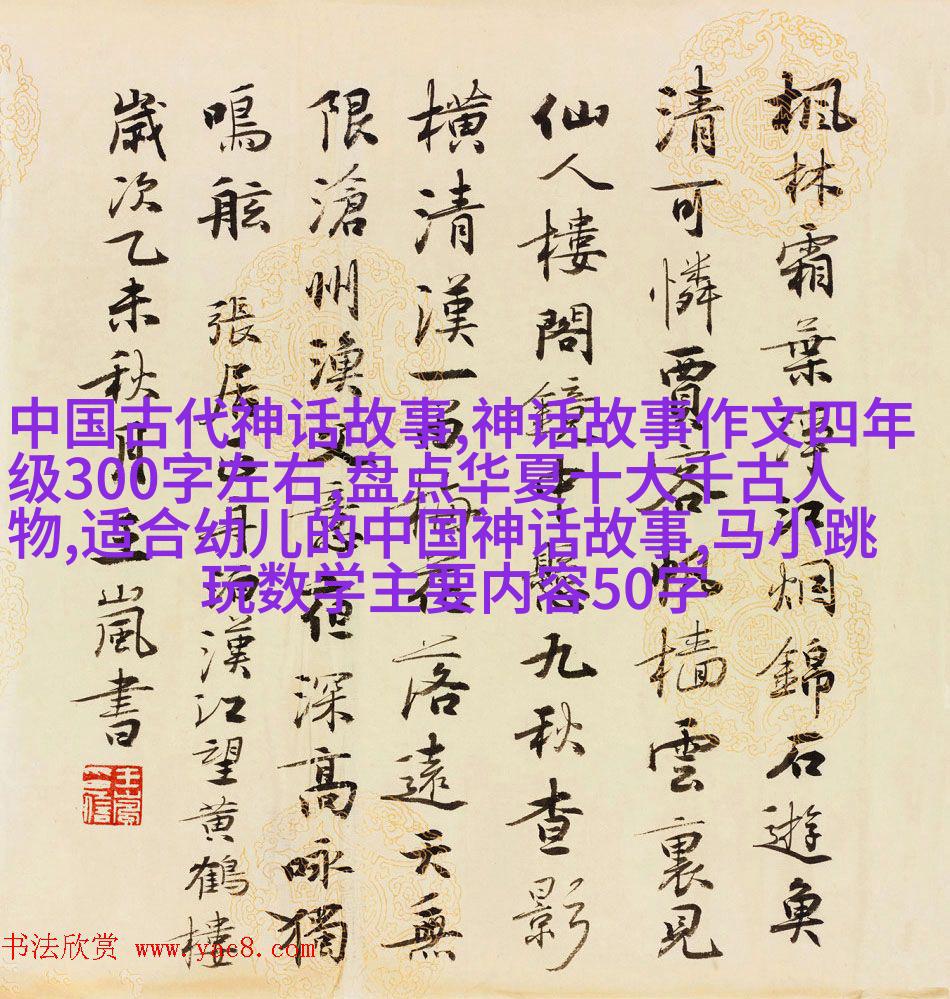 楓林霜葉淨江烟錦石遊魚
清可憐賈客帆檣雲裏見
仙人樓閣鏡中懸九秋查影
橫清漢一笛梅花落遠天無
限滄州漁父意夜深高咏獨
鳴舷 張居正舟泊漢江望黃鶴樓
歲次乙未秋月王嵐書
中国古代神话故事,神话故事作文四年
级300字左右,盘点华夏十大千古人
物,适合幼儿的中国神话故事,马小跳
玩数学主要内容50字
书法欣赏 www.yac8.com